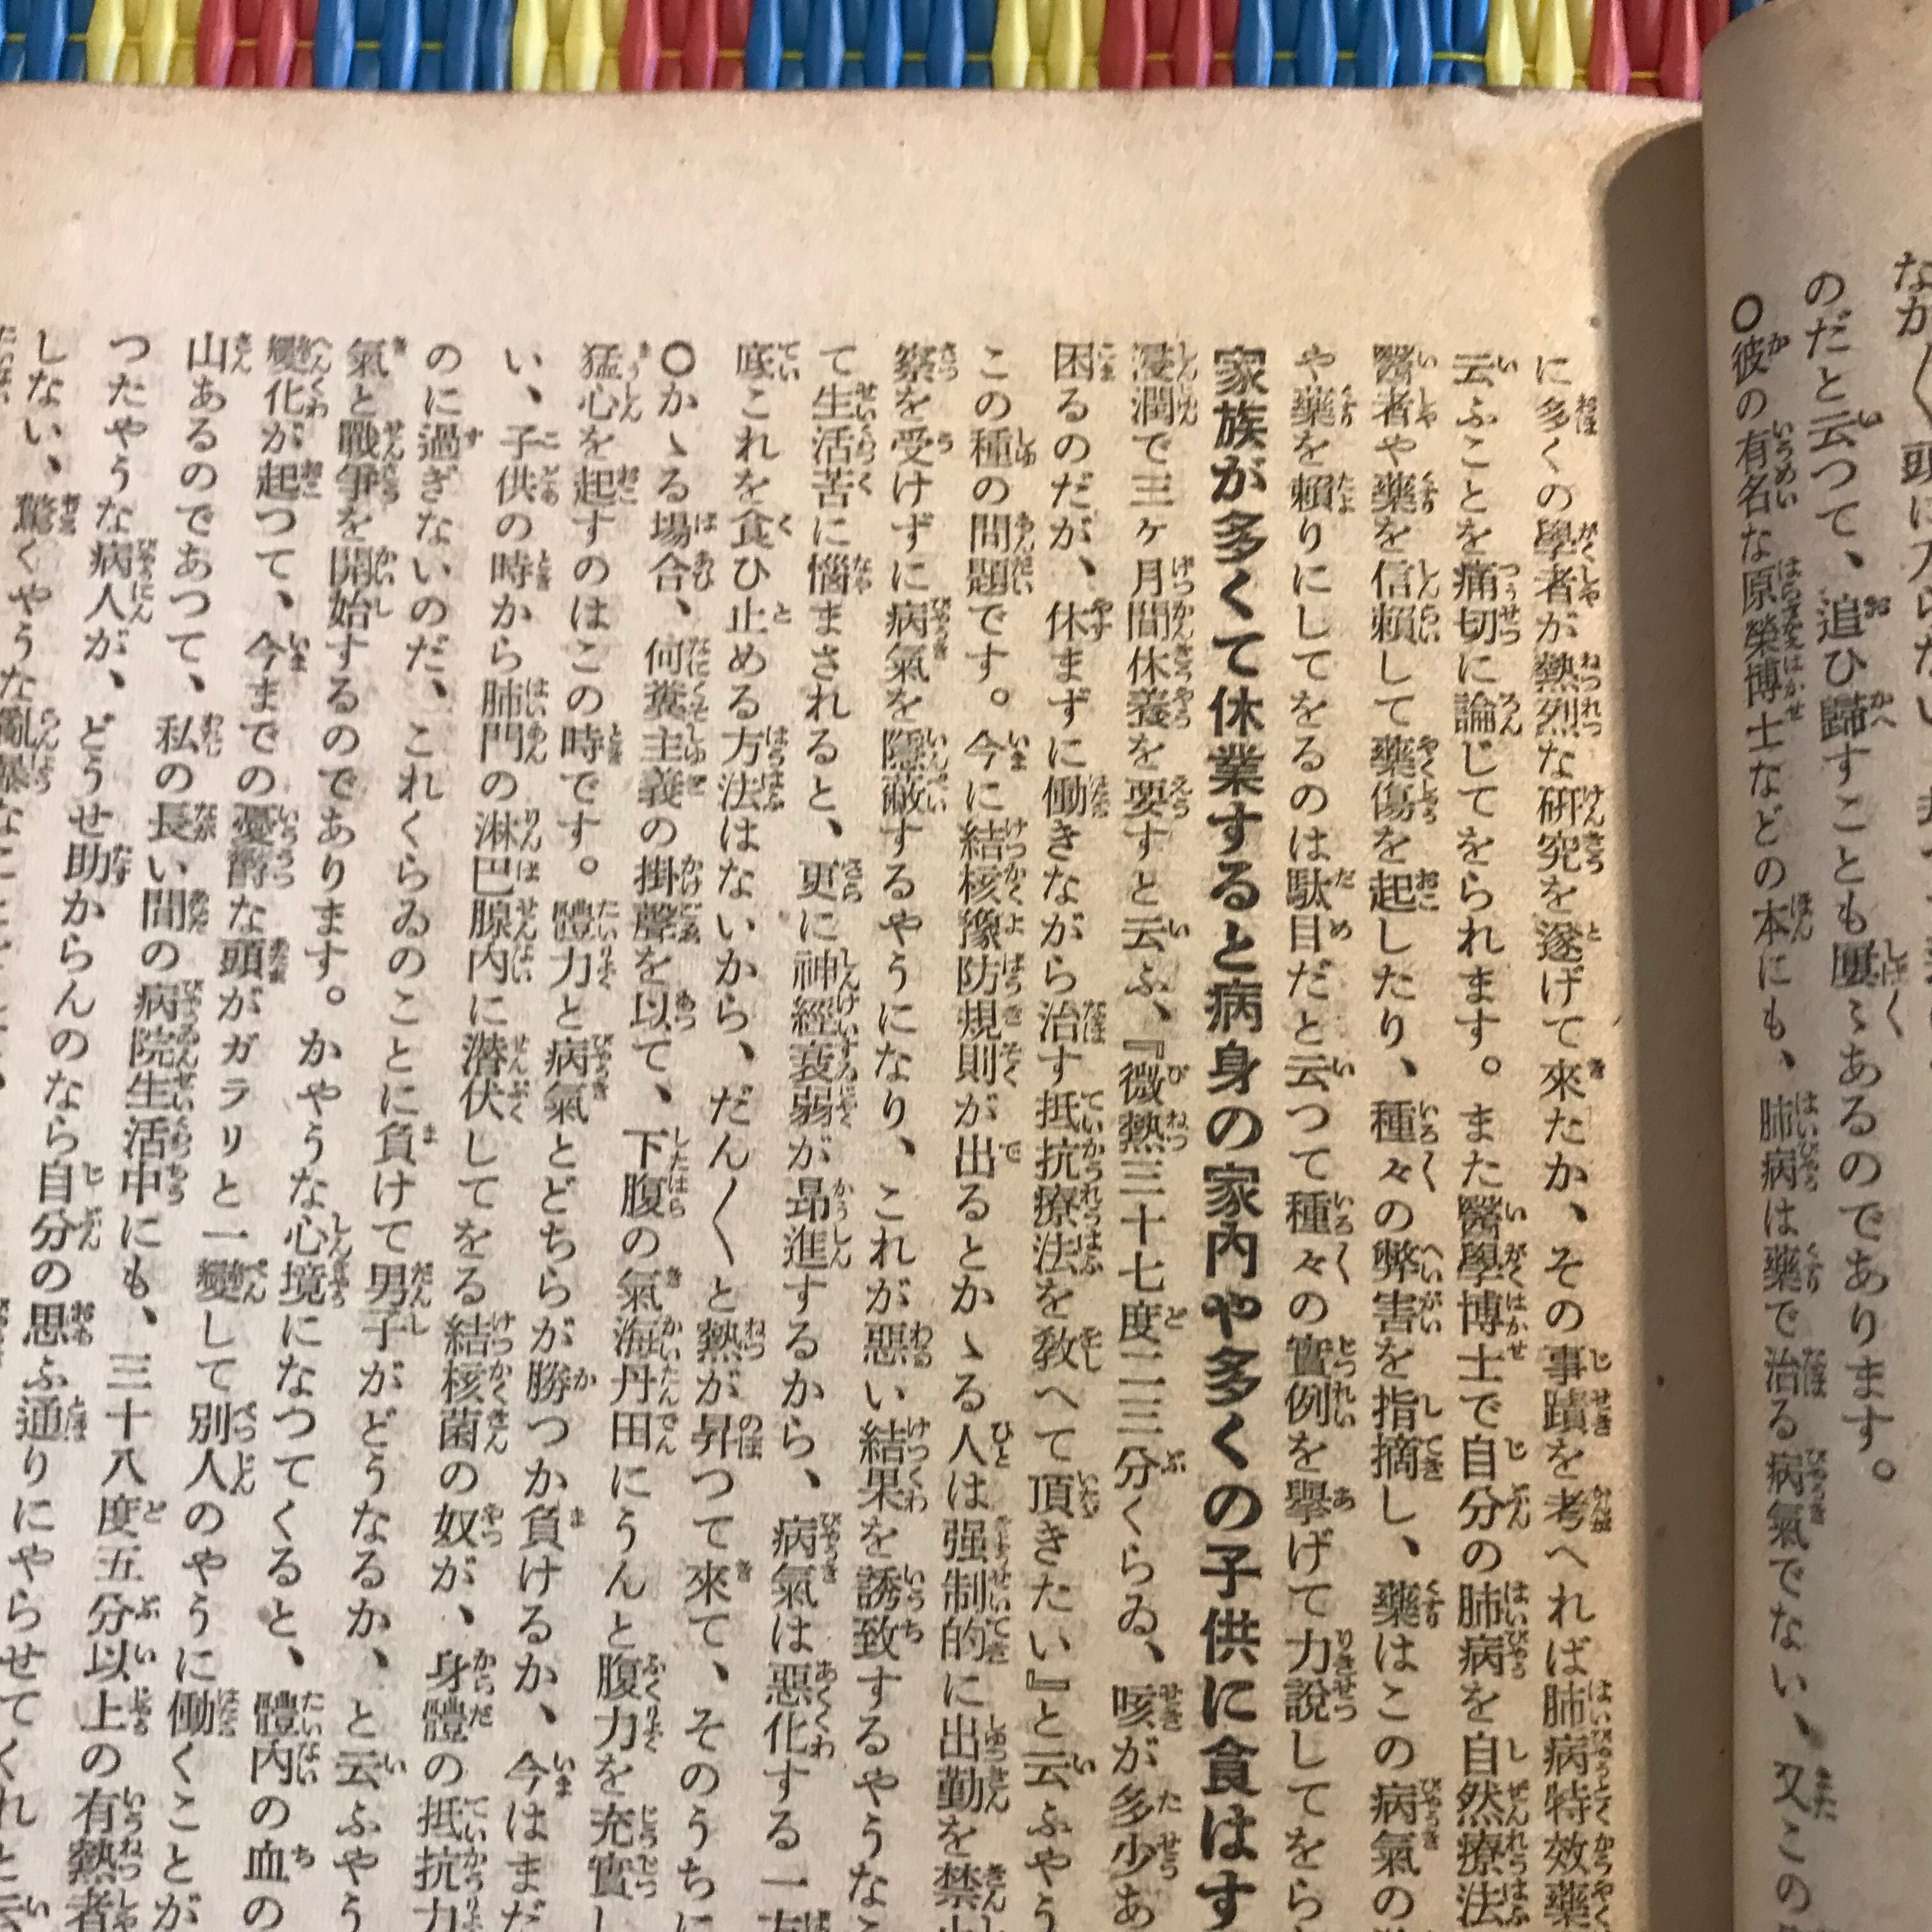 のだと云つて、追ひ歸すことも屢〻あるのであります。
〇彼の有名な原榮博士などの本にも、肺病は藥で治る病氣でない、又この
に多くの學者が熱烈な研究を遂げて來たか、その事蹟を考へれば肺病特效藥
云ふことを痛切に論じてをられます。また醫學博士で自分の肺病を自然療法
醫者や藥を信賴して藥傷を起したり、種々の弊害を指摘し、藥はこの病氣の
や藥を賴りにしてをるのは駄目だと云つて種々の實例を擧げて力說してをら
家族が多くて休業すると病身の家內や多くの子供に食はす
浸潤で三ヶ月間休養を要すと云ふ、『微熱三十七度二三分くらゐ、咳が多少あ
困るのだが、休まずに働きながら治す抵抗療法を敎へて頂きたい』と云ふやう
この種の問題です。今に結核豫防規則が出るとかゝる人は强制的に出勤を禁
察を受けずに病氣を隱蔽するやうになり、これが惡い結果を誘致するやうな
て生活苦に惱まされると、更に神經衰弱が昻進するから、病氣は惡化する一
底これを食ひ止める方法はないから、だん〱と熱が昇つて來て、そのうちに
〇かゝる場合、何糞主義の掛聲を以て、下腹の氣海丹田にうんと腹力を充實し
猛心を起すのはこの時です。體力と病氣とどちらが勝つか負けるか、今はまだ
い、子供の時から肺門の淋巴腺內に潛伏してをる結核菌の奴が、身體の抵抗力
のに過ぎないのだ、これくらゐのことに負けて男子がどうなるか、と云ふやう
氣と戰爭を開始するのであります。かやうな心境になつてくると、體內の血の
變化が起つて、今までの憂鬱な頭がガラリと一變して別人のやうに働くことが
山あるのであつて、私の長い間の病院生活中にも、三十八度五分以上の有熱者
つたやうな病人が、どうせ助からんのなら自分の思ふ通りにやらせてくれと云
しない、驚くやうな亂暴な